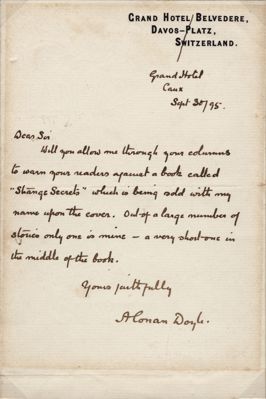 GRAND HOTEL BELVEDERE,
DAVOS-PLATZ,
SWITZERLAND.
Grand Hotel
Caux
Sept 30/95.
Dear Sir
Will you allow me through your columns
to warn your readers against a book called
"Strange Secrets" which is being sold with my
name upon the cover. Out of a large number of
stories only one is mine - a very short one in
the middle of the book.
Yours faithfully
A Conan Doyle.